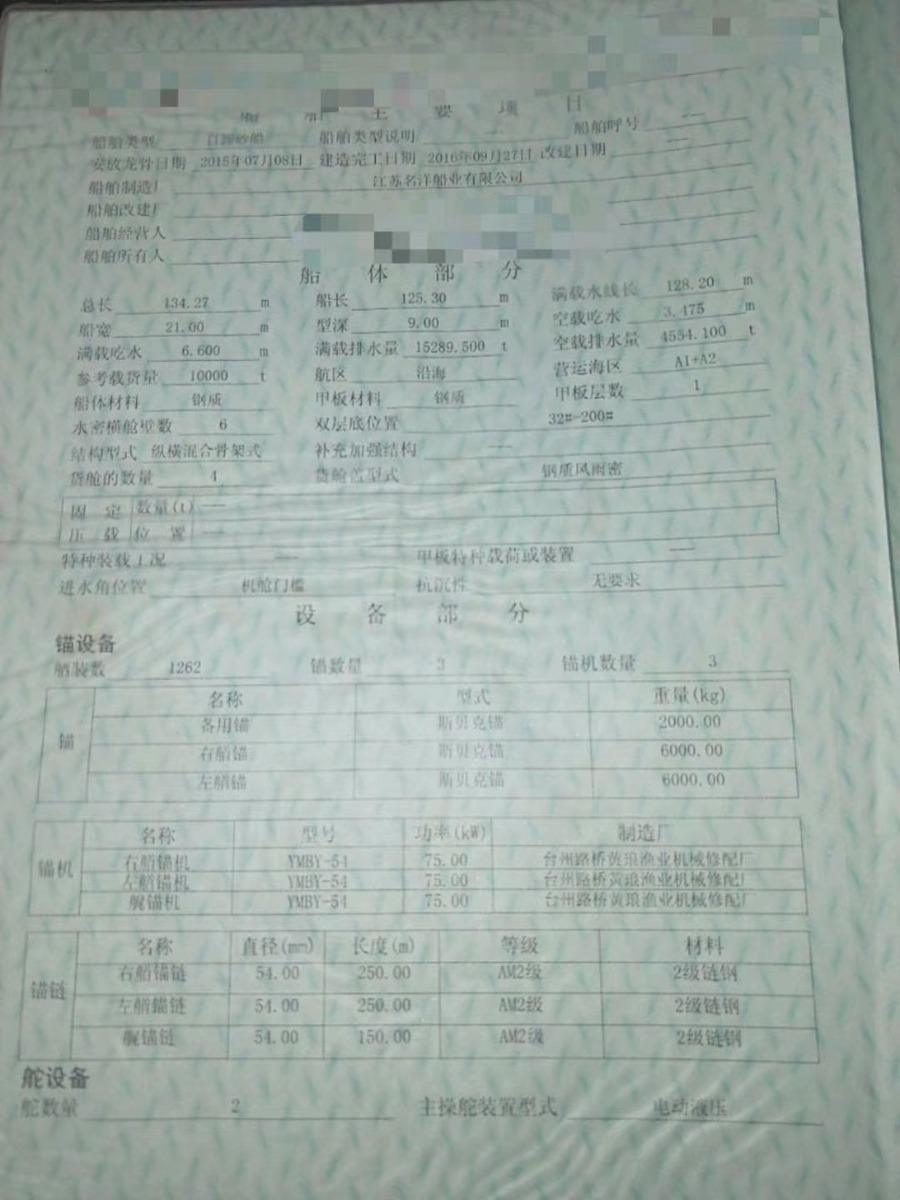 船舶主要项目
船舶类型 自卸砂船 船舶类型说明 —— 船舶呼号 ——
安放龙骨日期 2015年07月08日 建造完工日期 2016年09月27日 改建日期 ——
船舶制造厂 江苏名洋船业有限公司
船舶改建厂
船舶经营人
船舶所有人
船体部分
总长 134.27 m 船长 125.30 m 满载水线长 128.20 m
船宽 21.00 m 型深 9.00 m 空载吃水 3.475 m
满载吃水 6.600 m 满载排水量 15289.500 t 空载排水量 4554.100 t
参考载货量 10000 t 航区 沿海 营运海区 A1+A2
船体材料 钢质 甲板材料 钢质 甲板层数 1
水密横舱壁数 6 双层底位置 32#-200#
结构型式 纵横混合骨架式 补充加强结构 ——
货舱的数量 4 货舱盖型式 钢质风雨密
固定 数量(t) ——
压载 位置 ——
特种装载工况 —— 甲板特种载荷或装置 ——
进水角位置 机舱门槛 抗沉性 无要求
设备部分
锚设备
舾装数 1262 锚数量 3 锚机数量 3
锚 名称 型式 重量(kg)
备用锚 斯贝克锚 2000.00
右艏锚 斯贝克锚 6000.00
左艏锚 斯贝克锚 6000.00
锚机 名称 型号 功率(kW) 制造厂
右艏锚机 YMBY-54 75.00 台州路桥黄琅渔业机械修配厂
左艏锚机 YMBY-54 75.00 台州路桥黄琅渔业机械修配厂
艉锚机 YMBY-54 75.00 台州路桥黄琅渔业机械修配厂
锚链 名称 直径(mm) 长度(m) 等级 材料
右艏锚链 54.00 250.00 AM2级 2级链钢
左艏锚链 54.00 250.00 AM2级 2级链钢
艉锚链 54.00 150.00 AM2级 2级链钢
舵设备
舵数量 2 主操舵装置型式 电动液压